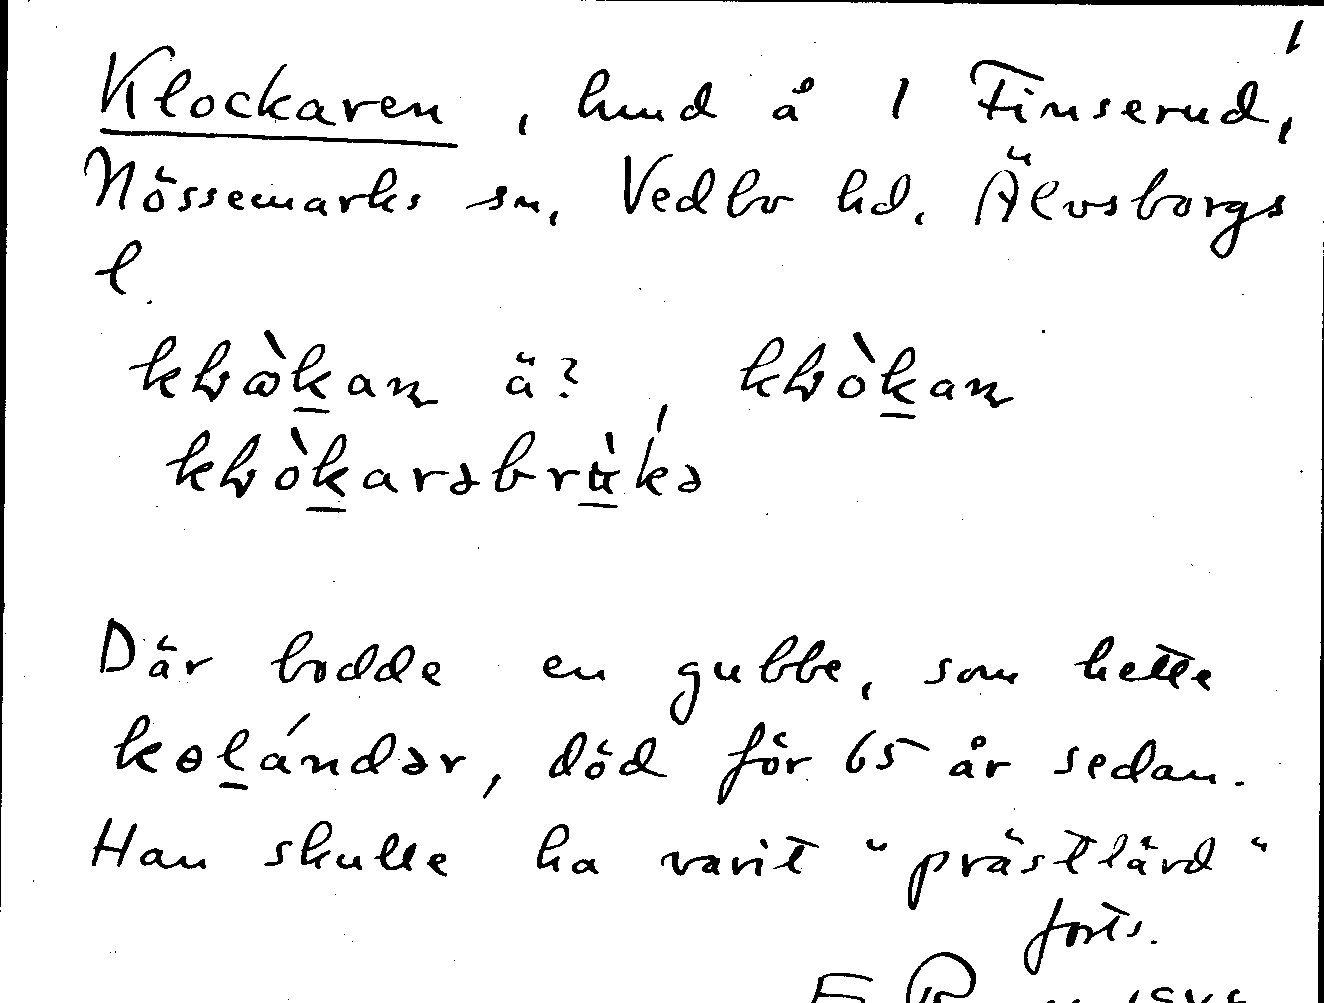 1
Klockaren, hmd å 1 Finserud,
Nössemarks sn, Vedbo hd. Älvsborgs
l.
ä?
Där bodde en gubbe, som hette
koländər, död för 65 år sedan.
Han skulle ha varit "prästlärd"
forts.